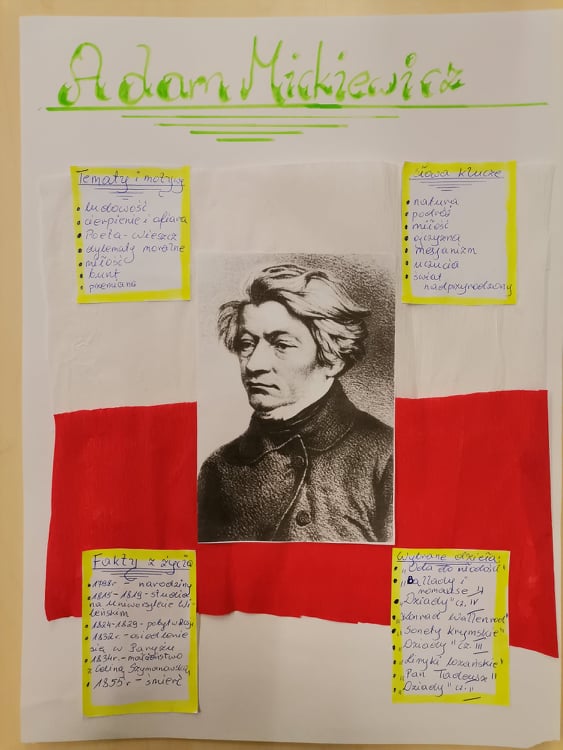 Adam Mickiewicz
Tematy i motywy
• ludowość
• cierpienie i ofiara
• Poeta-wieszcz
• dylematy moralne
• miłość
• bunt
• przemiana
Słowa klucze
• natura
• podróż
• miłość
• ojczyzna
• mesjanizm
• uczucia
• świat
nadprzyrodzony
Fakty z życia
• 1798r - narodziny
• 1815-1819 - studia
na Uniwersytecie Wi-
leńskim
• 1824-1829 - pobyt w Rosji
• 1832r - osiedlenie
się w Paryżu
• 1834r - małżeństwo
z Celiną Szymanowską
• 1855r - śmierć
Wybrane dzieła:
• "Oda do młodości"
• "Ballady i
romanse"
• "Dziady" cz. IV
• "Konrad Wallenrod"
• "Sonety krymskie"
• "Dziady" cz. III
• "Liryki lozańskie"
• "Pan Tadeusz"
• "Dziady" cz.